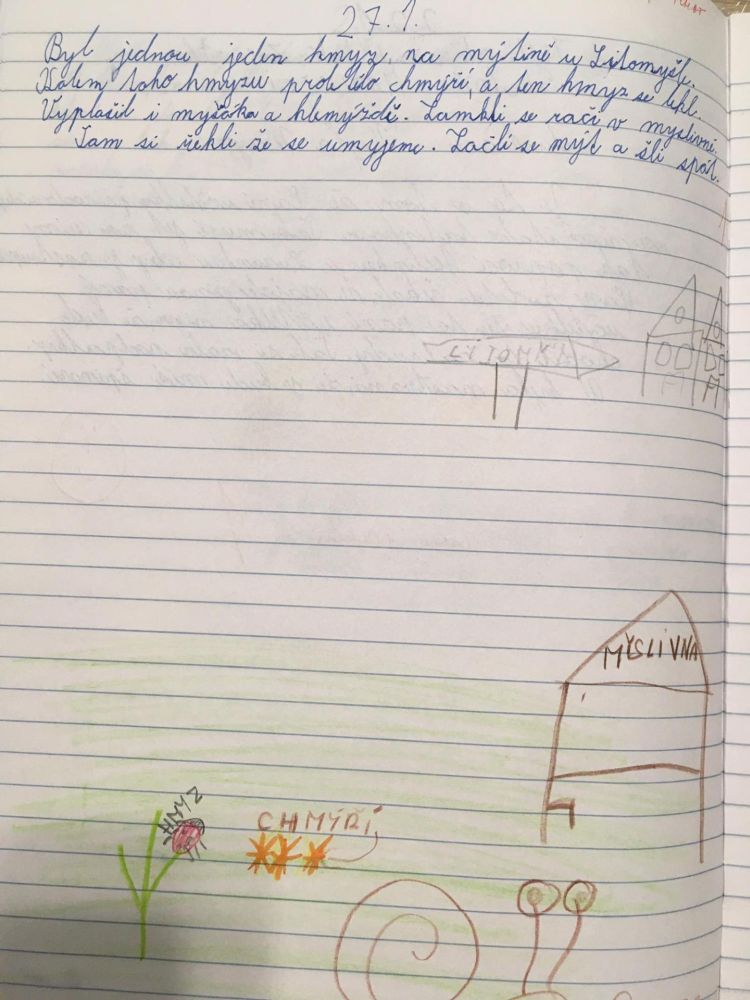 27.1.
Byl jednou jeden hmyz na mýtině u Litomyšle.
Kolem toho hmyzu proletělo chmýří, a ten hmyz se lekl.
Vyplašil i myšáka a hlemýždě. Zamkli se rači v myslivně.
Tam si řekli že se umyjeme. Začli se mýt a šli spát.
LÍTOMKL
MYSLIVNA
HMYZ
CHMÝŘÍ